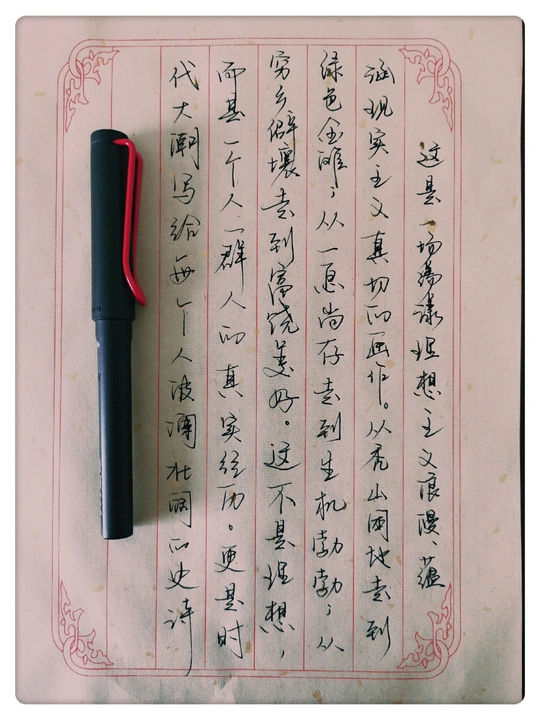 这是一场荡漾理想主义浪漫、蕴
涵现实主义真切的画作。从秃山困地走到
绿色金滩；从一息尚存走到生机勃勃；从
穷乡僻壤走到富饶美好。这不是理想，
而是一个人一群人的真实经历。更是时
代大潮写给每个人波澜壮阔的史诗